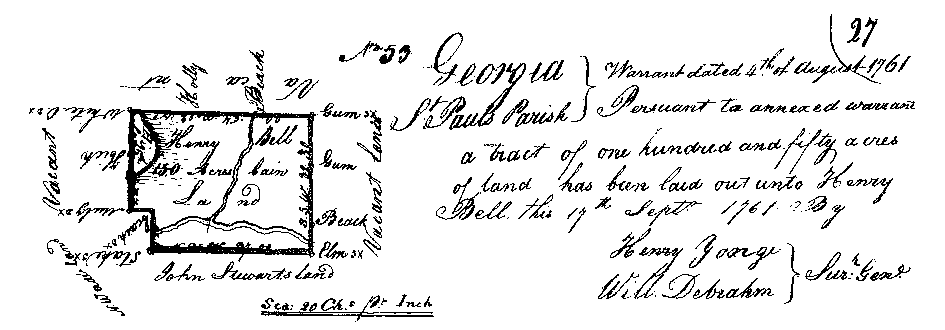 27
No 53
Georgia
St Pauls Parish
Warrant dated 4th of August 1761
Persuant to annexed warrant
a tract of one hundred and fifty acres
of land has been laid out unto Henry
Bell this 17th Septr 1761 By
Henry Yonge
Will. Debrahm
Surr. Genl
Vacant
Holly
Beach
Gum
Henry Bell
150 Acres
Land
Gum
Beach
Elm
Vacant Land
Vacant
Stake
John Stewarts Land
Sca: 20 Chs pr Inch